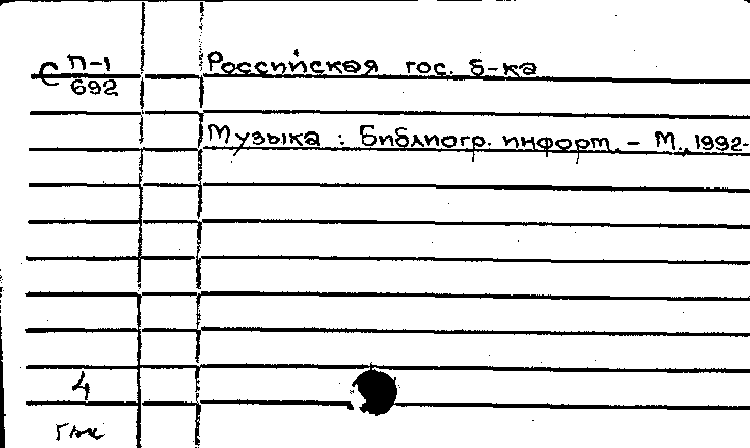 С П-1
692
Российская гос. б-ка
Музыка : Библиогр. информ. - М., 1992-
4